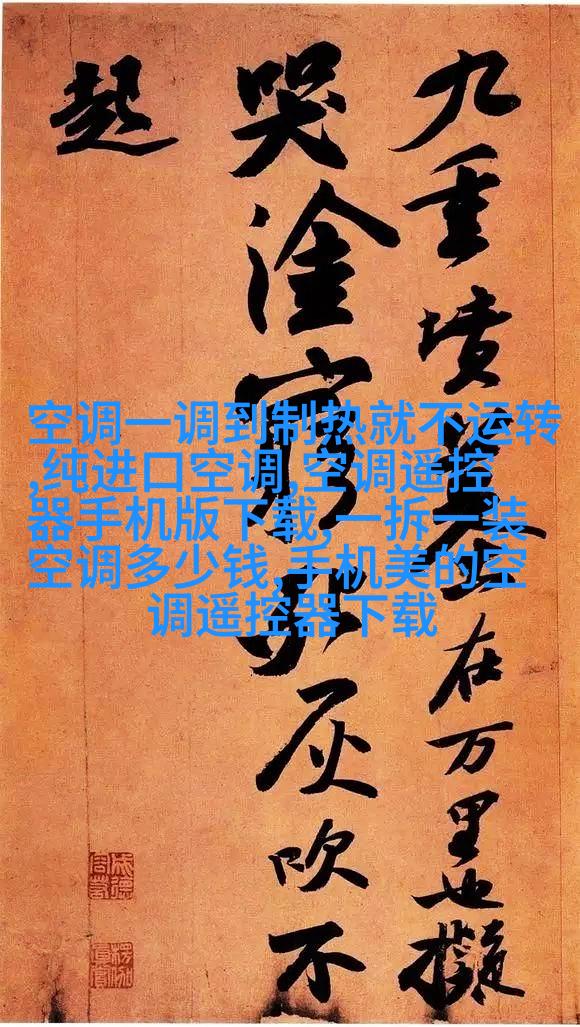 九重墳墓在万里也擬
哭塗窮死灰吹不
起
空调一调到制热就不运转
,纯进口空调,空调遥控
器手机版下载,一拆一装
空调多少钱,手机美的空
调遥控器下载
成德容若
楞伽真賞